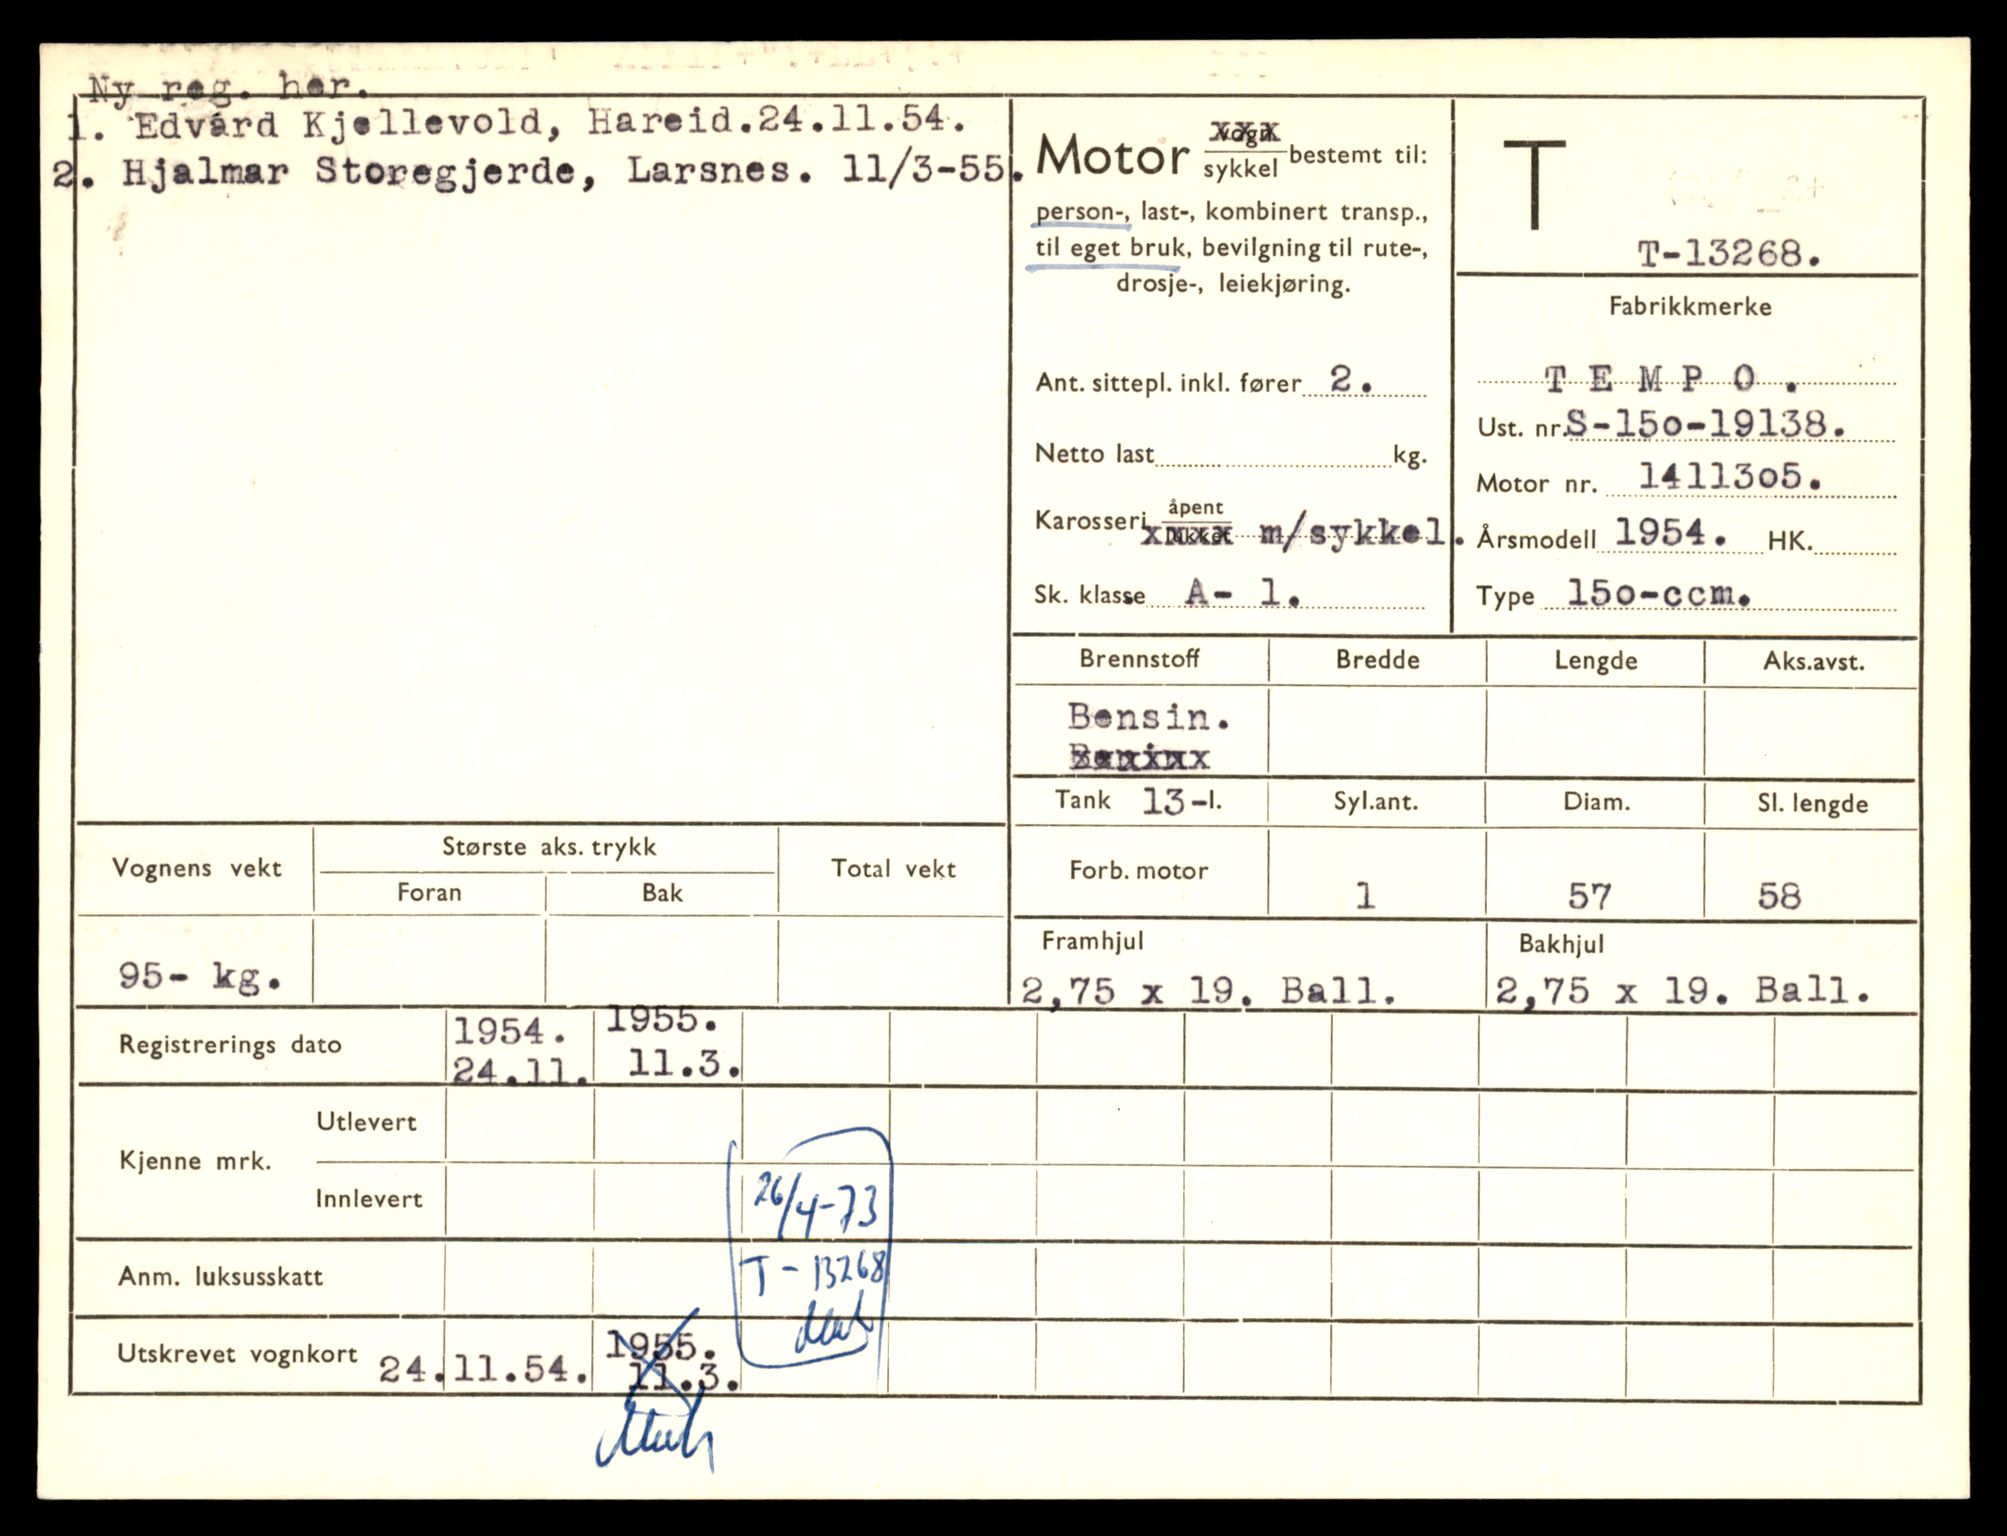 Ny reg. her.
1. Edvard Kjellevold, Hareid.24.11.54.
2. Hjalmar Storegjerde, Larsnes. 11/3-55.
Motor vogn/sykkel bestemt til:
person-, last-, kombinert transp.,
til eget bruk, bevilgning til rute-,
drosje-, leiekjøring.
Ant. sittepl. inkl. fører 2.
Netto last kg.
Karosseri åpent/lukket m/sykkel.
Sk. klasse A- 1.
T
T-13268.
Fabrikkmerke
T E M P O .
Ust. nr. S-15o-19138.
Motor nr. 14113o5.
Årsmodell 1954. HK.
Type 15o-ccm.
Brennstoff Bredde Lengde Aks.avst.
Bensin.
Tank 13-l. Syl.ant. Diam. Sl. lengde
Forb. motor 1 57 58
Framhjul Bakhjul
2,75 x 19. Ball. 2,75 x 19. Ball.
Vognens vekt Største aks. trykk Total vekt
Foran Bak
95- kg.
Registrerings dato 1954. 1955.
24.11. 11.3.
Kjenne mrk. Utlevert
Innlevert 26/4-73
Anm. luksusskatt T-13268
Utskrevet vognkort 24.11.54. 1955.
11.3.